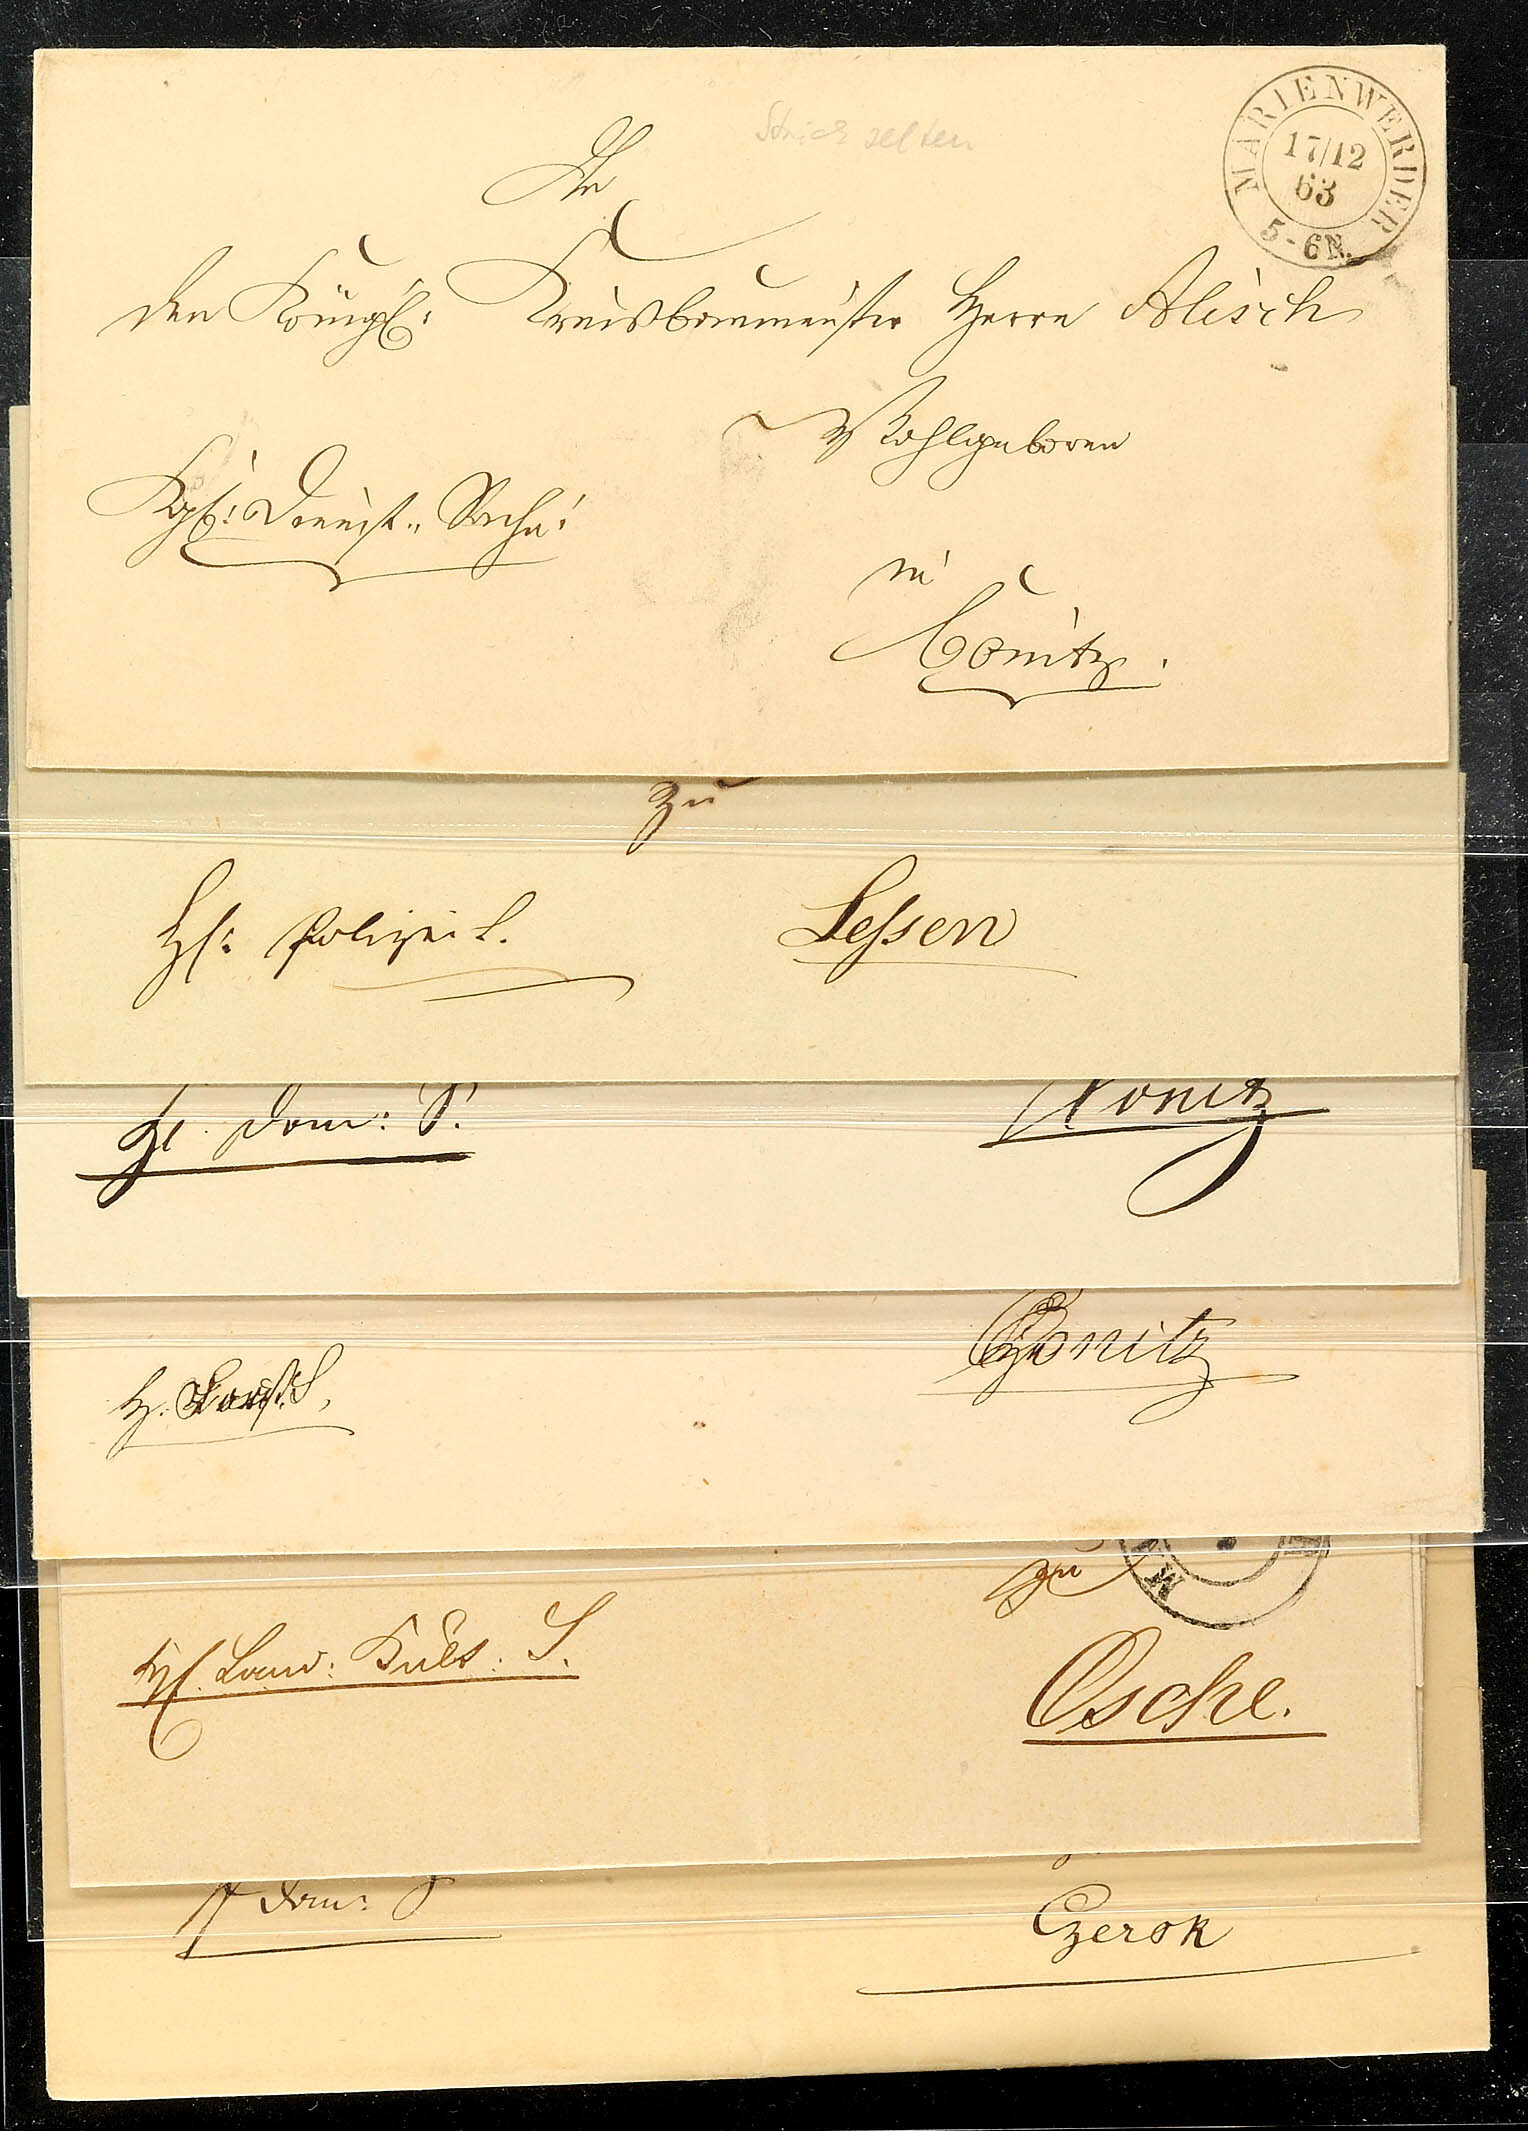 Strich selten
MARIENWERDER
17/12
63
5-6N.
An
den Königl: Kreisbaumeister Herrn Alisch
Wohlgeboren
Kgl: Dienst-Sache!
in
Conitz.
zu
Hf: Polizei S. Lessen
Hf. Dom: S. Konitz
H. Forst. S. Conitz
zu
Hf. Land: Kult: S. Osche.
Dom: S Czersk